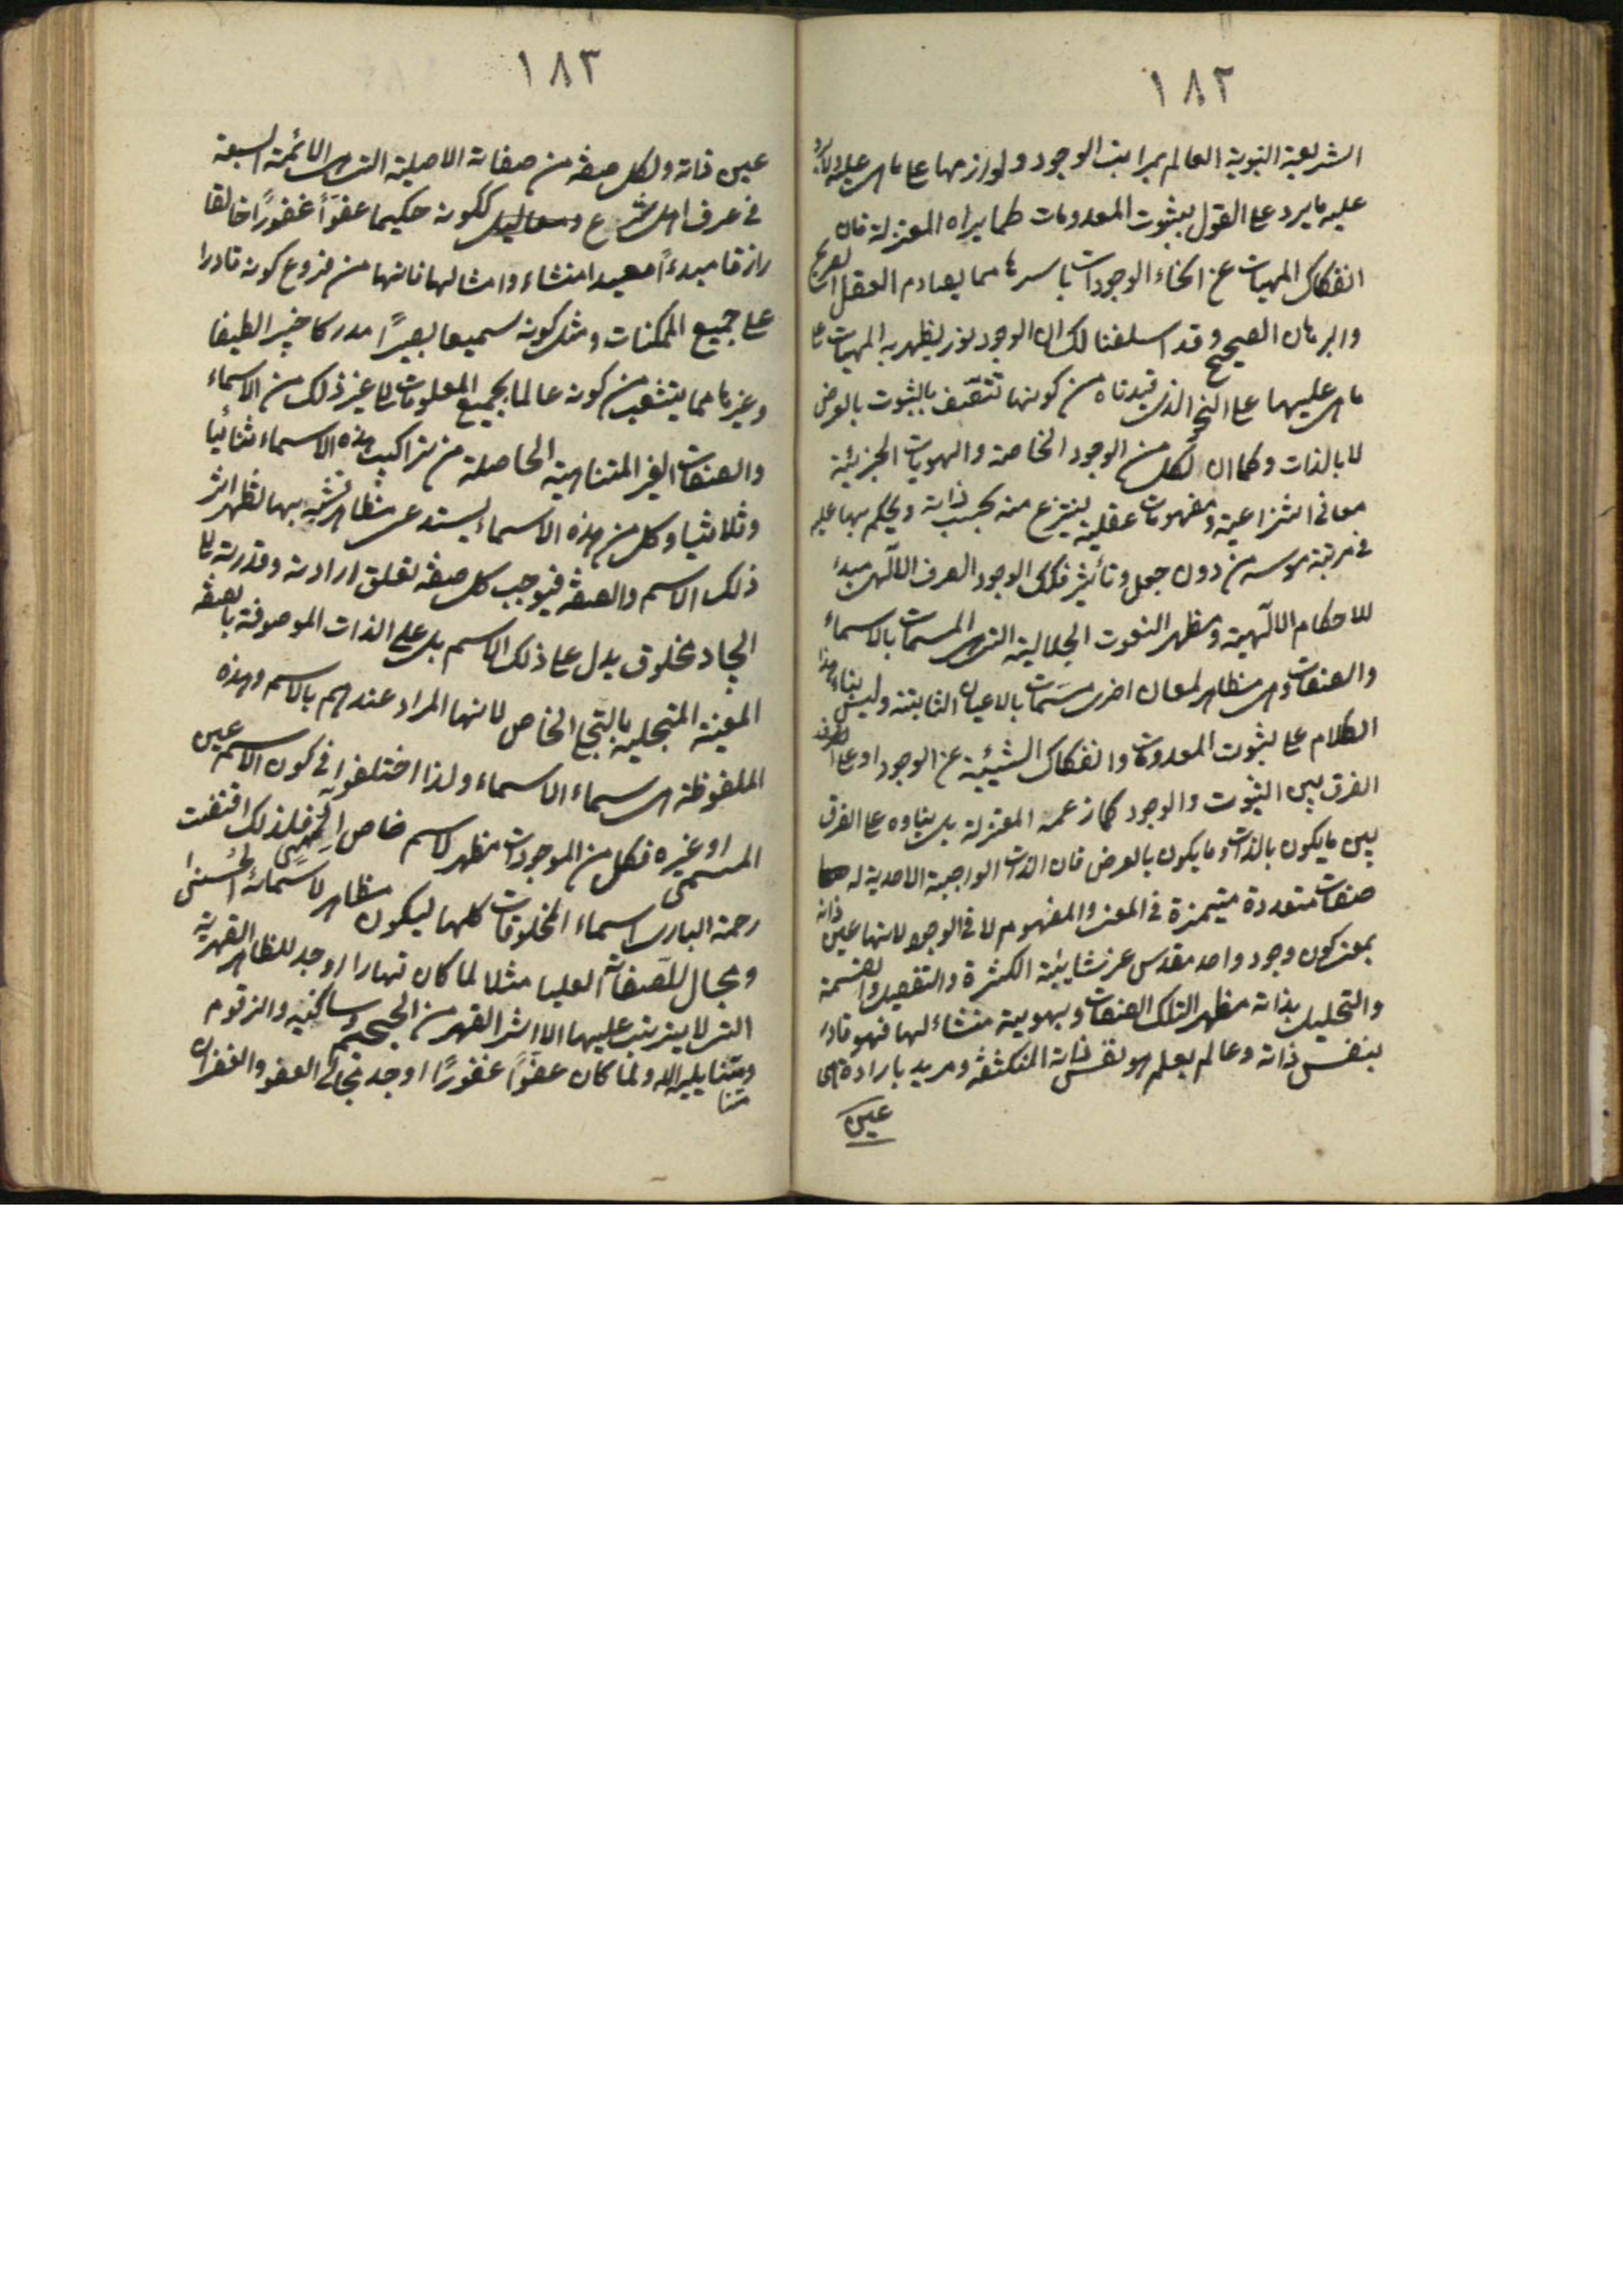 ١٨٢
الشريعة النبوية العالم بمراتب الوجود ولوازمها على ما هى عليه ولا يرد
عليه ما يرد على القول بثبوت المعدومات كما يراه المعتزلة فان
انفكاك المهيات عن انحاء الوجودات باسرها مما يصادم العقل الصريح
والبرهان الصحيح وقد اسلفنا لك ان الوجود نور يظهر به المهيات على
ما هى عليها على النحو الذى قيدناه من كونها تتصف بالثبوت بالعرض
لا بالذات وكما ان لكل من الوجود الخاصة والهويات الجزئية
معانى انتزاعية ومفهومات عقلية ينتزع منه بحسب ذاته ويحكم بها عليه
فى مرتبة هويته من دون جعل وتأثير فكك الوجود الصرف الآلهى مبدء
للاحكام الآلهية ومظهر النعوت الجلالية التى هى المسمات بالاسماء
والصفات وهى مظاهر لمعان اخرى مسمات بالاعيان الثابتة وليس بناء هذا
الكلام على ثبوت المعدومات وانفكاك الشيئية عن الوجود او على
الفرق بين الثبوت والوجود كما زعمه المعتزلة بل بناوه على الفرق
بين ما يكون بالذات وما يكون بالعرض فان الذات الواجبة الاحدية له
صفات متعددة متيمزة فى المعنى والمفهوم لا فى الوجود لانها عين ذاته
بمعنى كون وجود واحد مقدس عن شايئبة الكثرة والتفصيل والقسمة
والتحليل بذاته مظهر التلك الصفات وبهويته منشاء لها فهو قادر
بنفس ذاته وعالم بعلم هو نفس ذاته المنكشفة ومريد بارادة هى
عين
١٨٣
عين ذاته ولكل صفة من صفاته الاصلية التى هى الائمة السبعة
فى عرف اهل الشرع ككونه حكيما عفوًا غفورًا خالقا
رازقا مبدءًا معيدا منشاء وامثالها فانها من فروع كونه قادرا
على جميع الممكنات ومثل كونه سميعا بصيرًا مدركا خبيرا لطيفا
وغيرها مما يتشعب من كونه عالما بجميع المعلومات الى غير ذلك من الاسماء
والصفات الغير المتناهية الحاصلة من تراكيب هذه الاسماء ثنائيا
وثلاثيا وكل من هذه الاسماء يستدعى مظاهر بها يظهر اثر
ذلك الاسم والصفة فيوجب كل صفة تعلق ارادته وقدرته الى
ايجاد مخلوق يدل على ذلك الاسم بل على الذات الموصوفة بالصفة
المعينة المتجلية بالتجلى الخاص لانها المراد عندهم بالاسم وهذه
الملفوظة هى سماء الاسماء ولذا اختلفوا فى كون الاسم عين
المسمى او غيره فكل من الموجودات مظهر لاسم خاص الهى فلذلك اقتضت
رحمة البارى اسماء المخلوقات كلها ليكون مظاهر لاسمائه الحسنى
ومجال للصفات العليا مثلا لما كان قهارا اوجد المظاهر القهرية
التى لا يترتب عليها الا اثر القهر من الجحيم وساكنيه والزقوم
ومتنا يليه ولما كان عفوًا غفورًا اوجد مجالى العفو والغفران